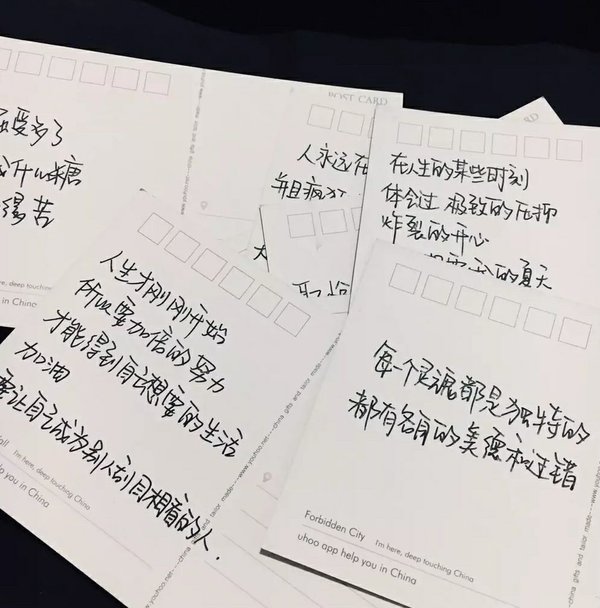 受多了
什么糖
得苦
POST CARD
人永远在
并且疯
在人生的某些时刻
体会过 极致的压抑
炸裂的开心
的夏天
人生才刚刚开始
所以要加倍的努力
才能得到自己想要的生活
加油
要让自己成为别人刮目相看的人.
I'm here, deep touching China
help you in China
www.youhoo.net---china gifts and tailor made---
每一个灵魂都是独特的
都有各自的美德和过错
Forbidden City I'm here, deep touching China
uhoo app help you in China
www.youhoo.net---china gifts and tailor made---